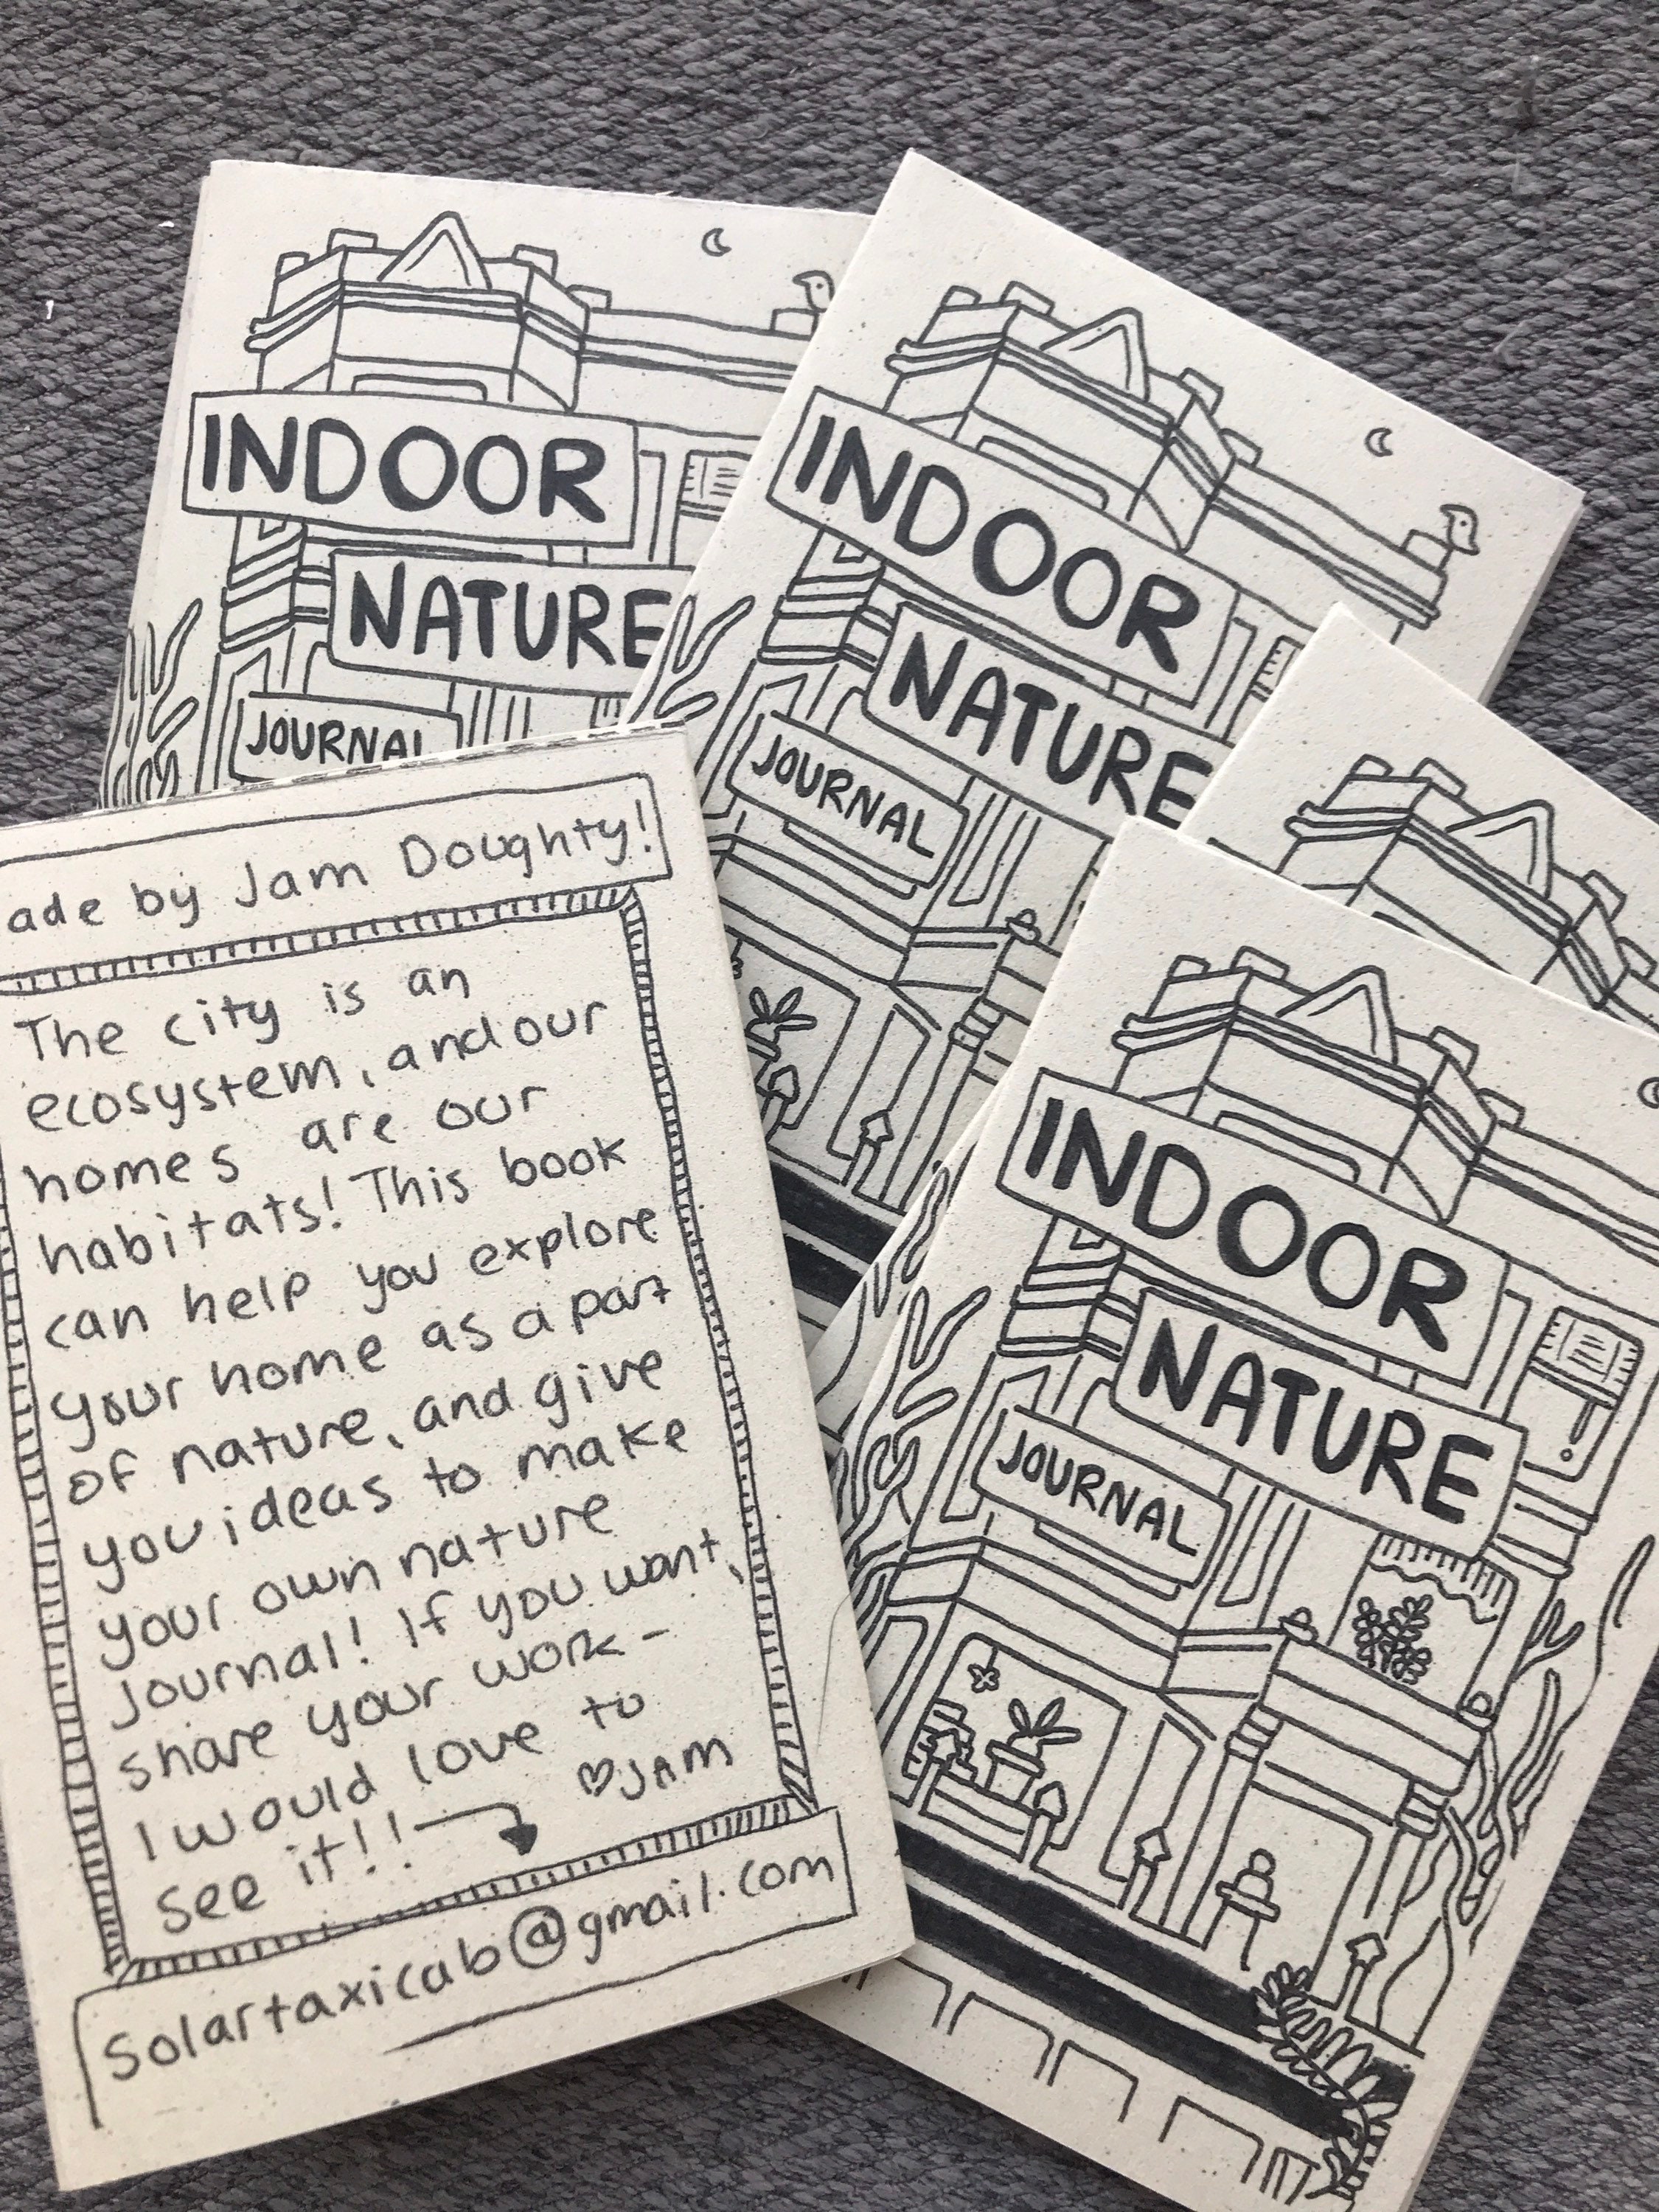 INDOOR
NATURE
JOURNAL
INDOOR
NATURE
JOURNAL
INDOOR
NATURE
JOURNAL
ade by Jam Doughty!
The city is an
ecosystem, and our
homes are our
habitats! This book
can help you explore
your home as a part
of nature, and give
you ideas to make
your own nature
journal! If you want,
share your work-
I would love to
see it!! ♡JAM
Solartaxicab@gmail.com